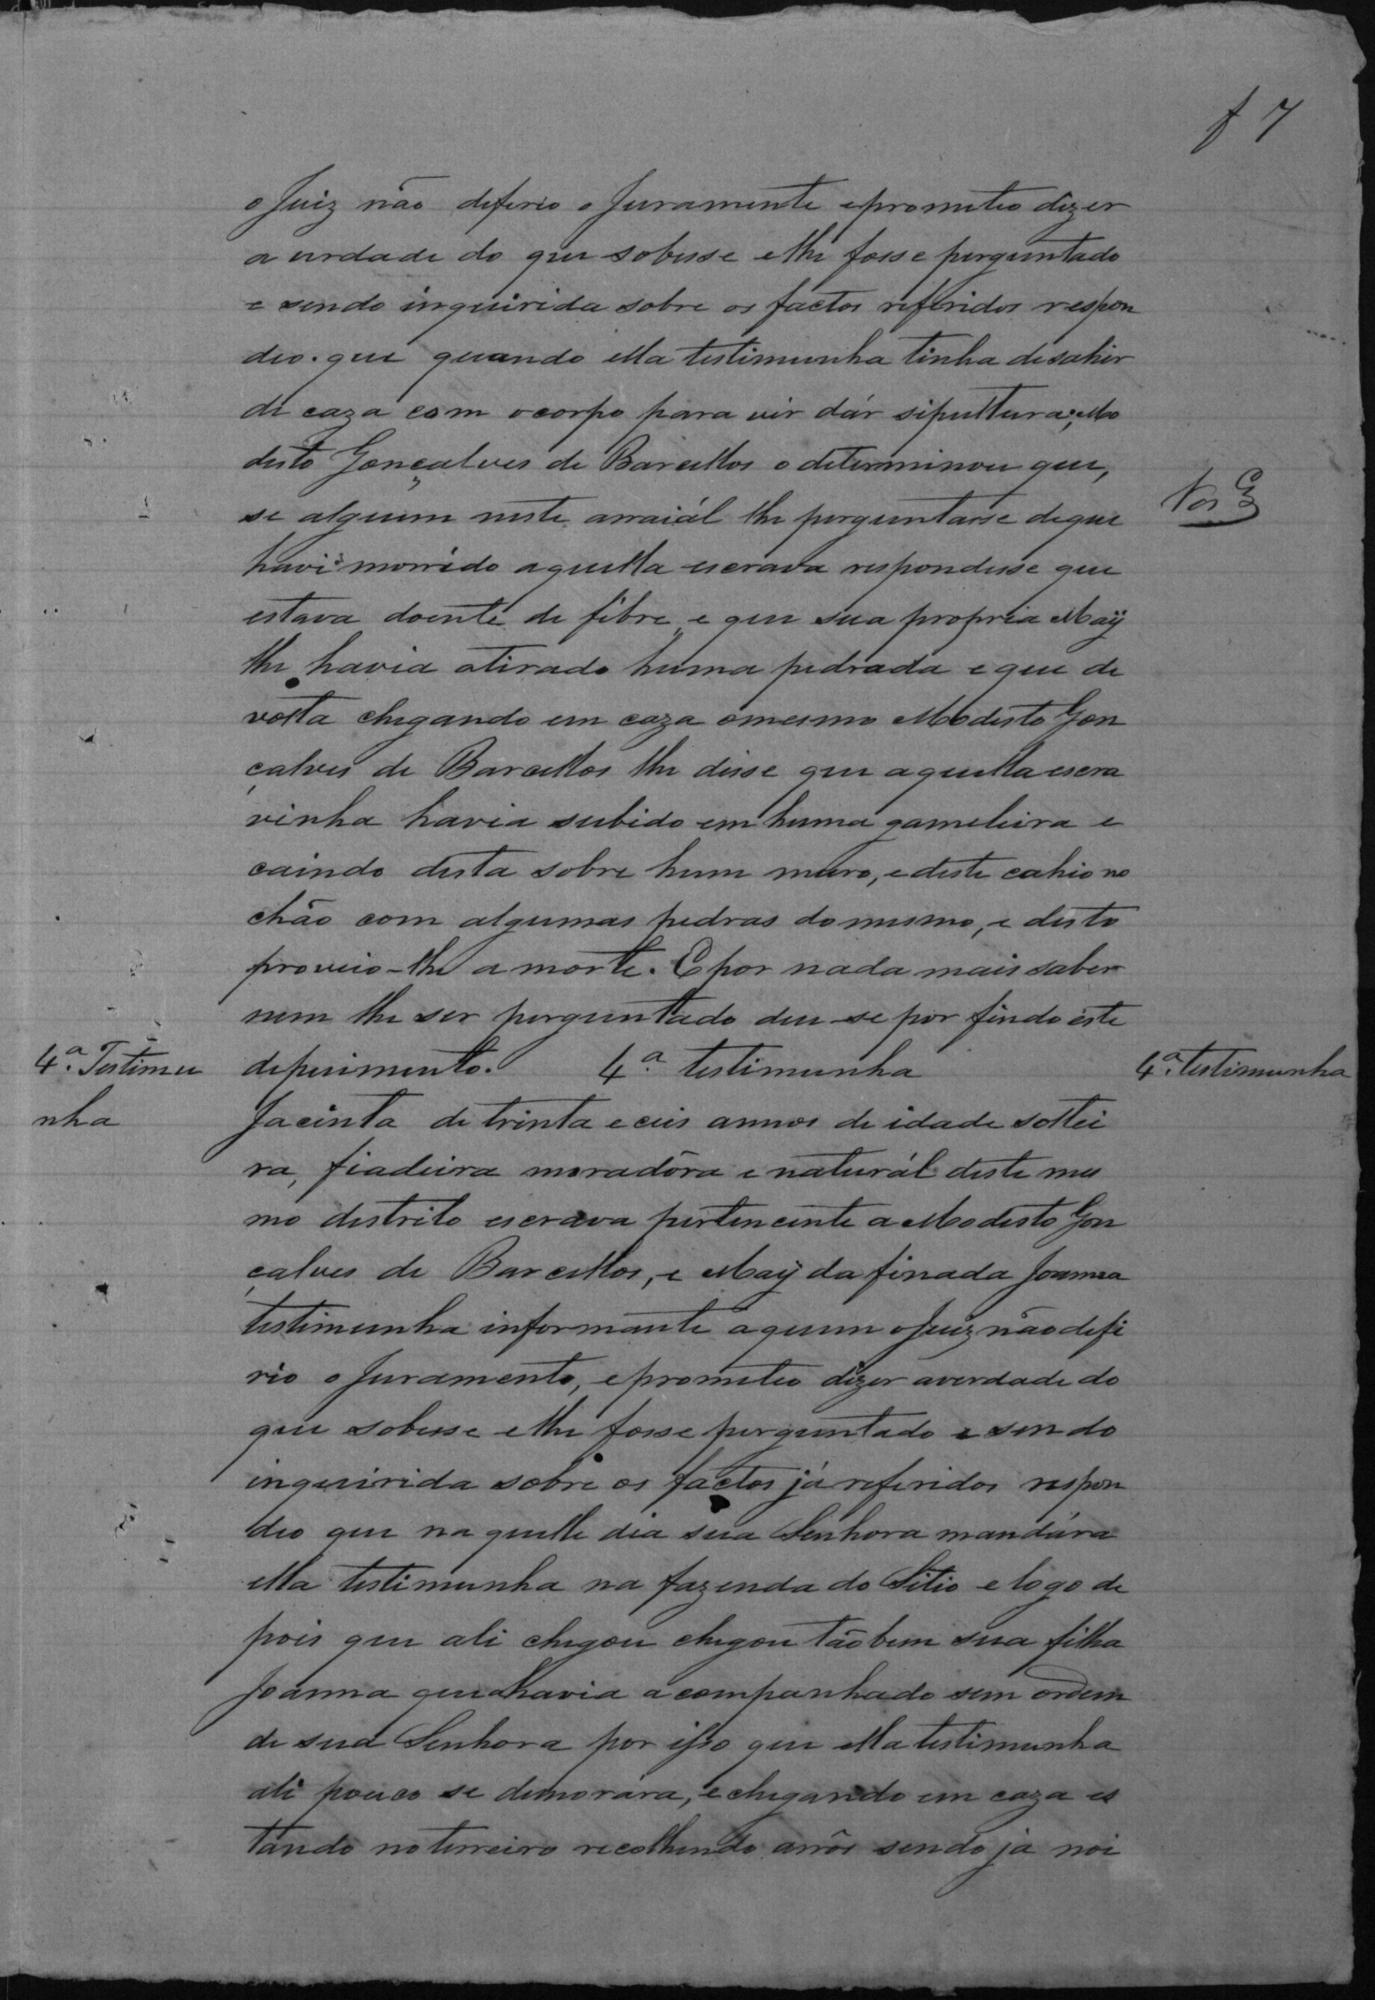 f 7
o Juiz não diferio o Juramente e prometeo dizer
a verdade do que sobesse e lhe fosse perguntado
e sendo inquirida sobre os factos referidos respon
deo. que quando ella testimunha tinha desahir
de caza com o corpo para vir dár sipultura; Mo
desto Gonçalves de Barcellos o determinou que,
se alguem neste arraiál lhe perguntarse de que
havi morrido aquella escrava respondesse que
estava doente de febre, e que sua propria Maÿ
lhe havia atirado huma pedrada e que de
volta chegando em caza o mesmo Modesto Gon
çalves de Barcellos lhe disse que aquella escra
vinha havia subido em huma gameleira e
caindo desta sobre hum muro, e deste cahio no
chão com algumas pedras do mesmo, e desto
proveio-lhe a morte. E por nada mais saber
nem lhe ser perguntado deu-se por findo este
4.ª Testimu
nha
depuimento. 4.ª testimunha
4.ª testimunha
Jacinta de trinta e ceis annos de idade soltei
ra, fiadeira moradôra e naturál deste mes
mo distrito escrava pertencente a Modesto Gon
çalves de Barcellos, e Maÿ da finada Joanna
testimunha informante a quem o Juiz não defi
rio o Juramento, e prometeo dizer averdade do
que sobesse e lhe fosse perguntado e sendo
inquirida sobre os factos já referidos respon
deo que na quelle dia sua Senhora mandára
ella testimunha na fazenda do Sitio e logo de
pois que ali chegou chegou tãobem sua filha
Joanna que a havia acompanhado sem ordem
de sua Senhora por isso que ella testimunha
ali pouco se demorára, e chegando em caza es
tando no terreiro recolhendo arrôs sendo ja noi